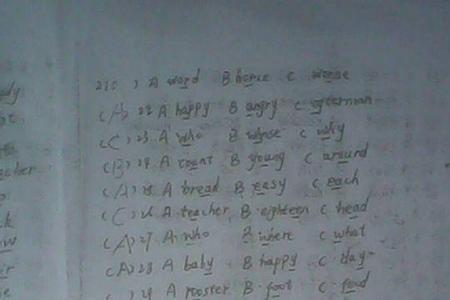 A word B horse C worse
(A) 22 A happy B angry C
(C) 23 A who B whose C why
(B) 24 A count B young C around
(A) 25 A bread B easy C each
(C) 26 A teacher B eighteen C head
(A) 27 A who B where C what
(A) 28 A baby B happy C day
29 A rooster B foot C food